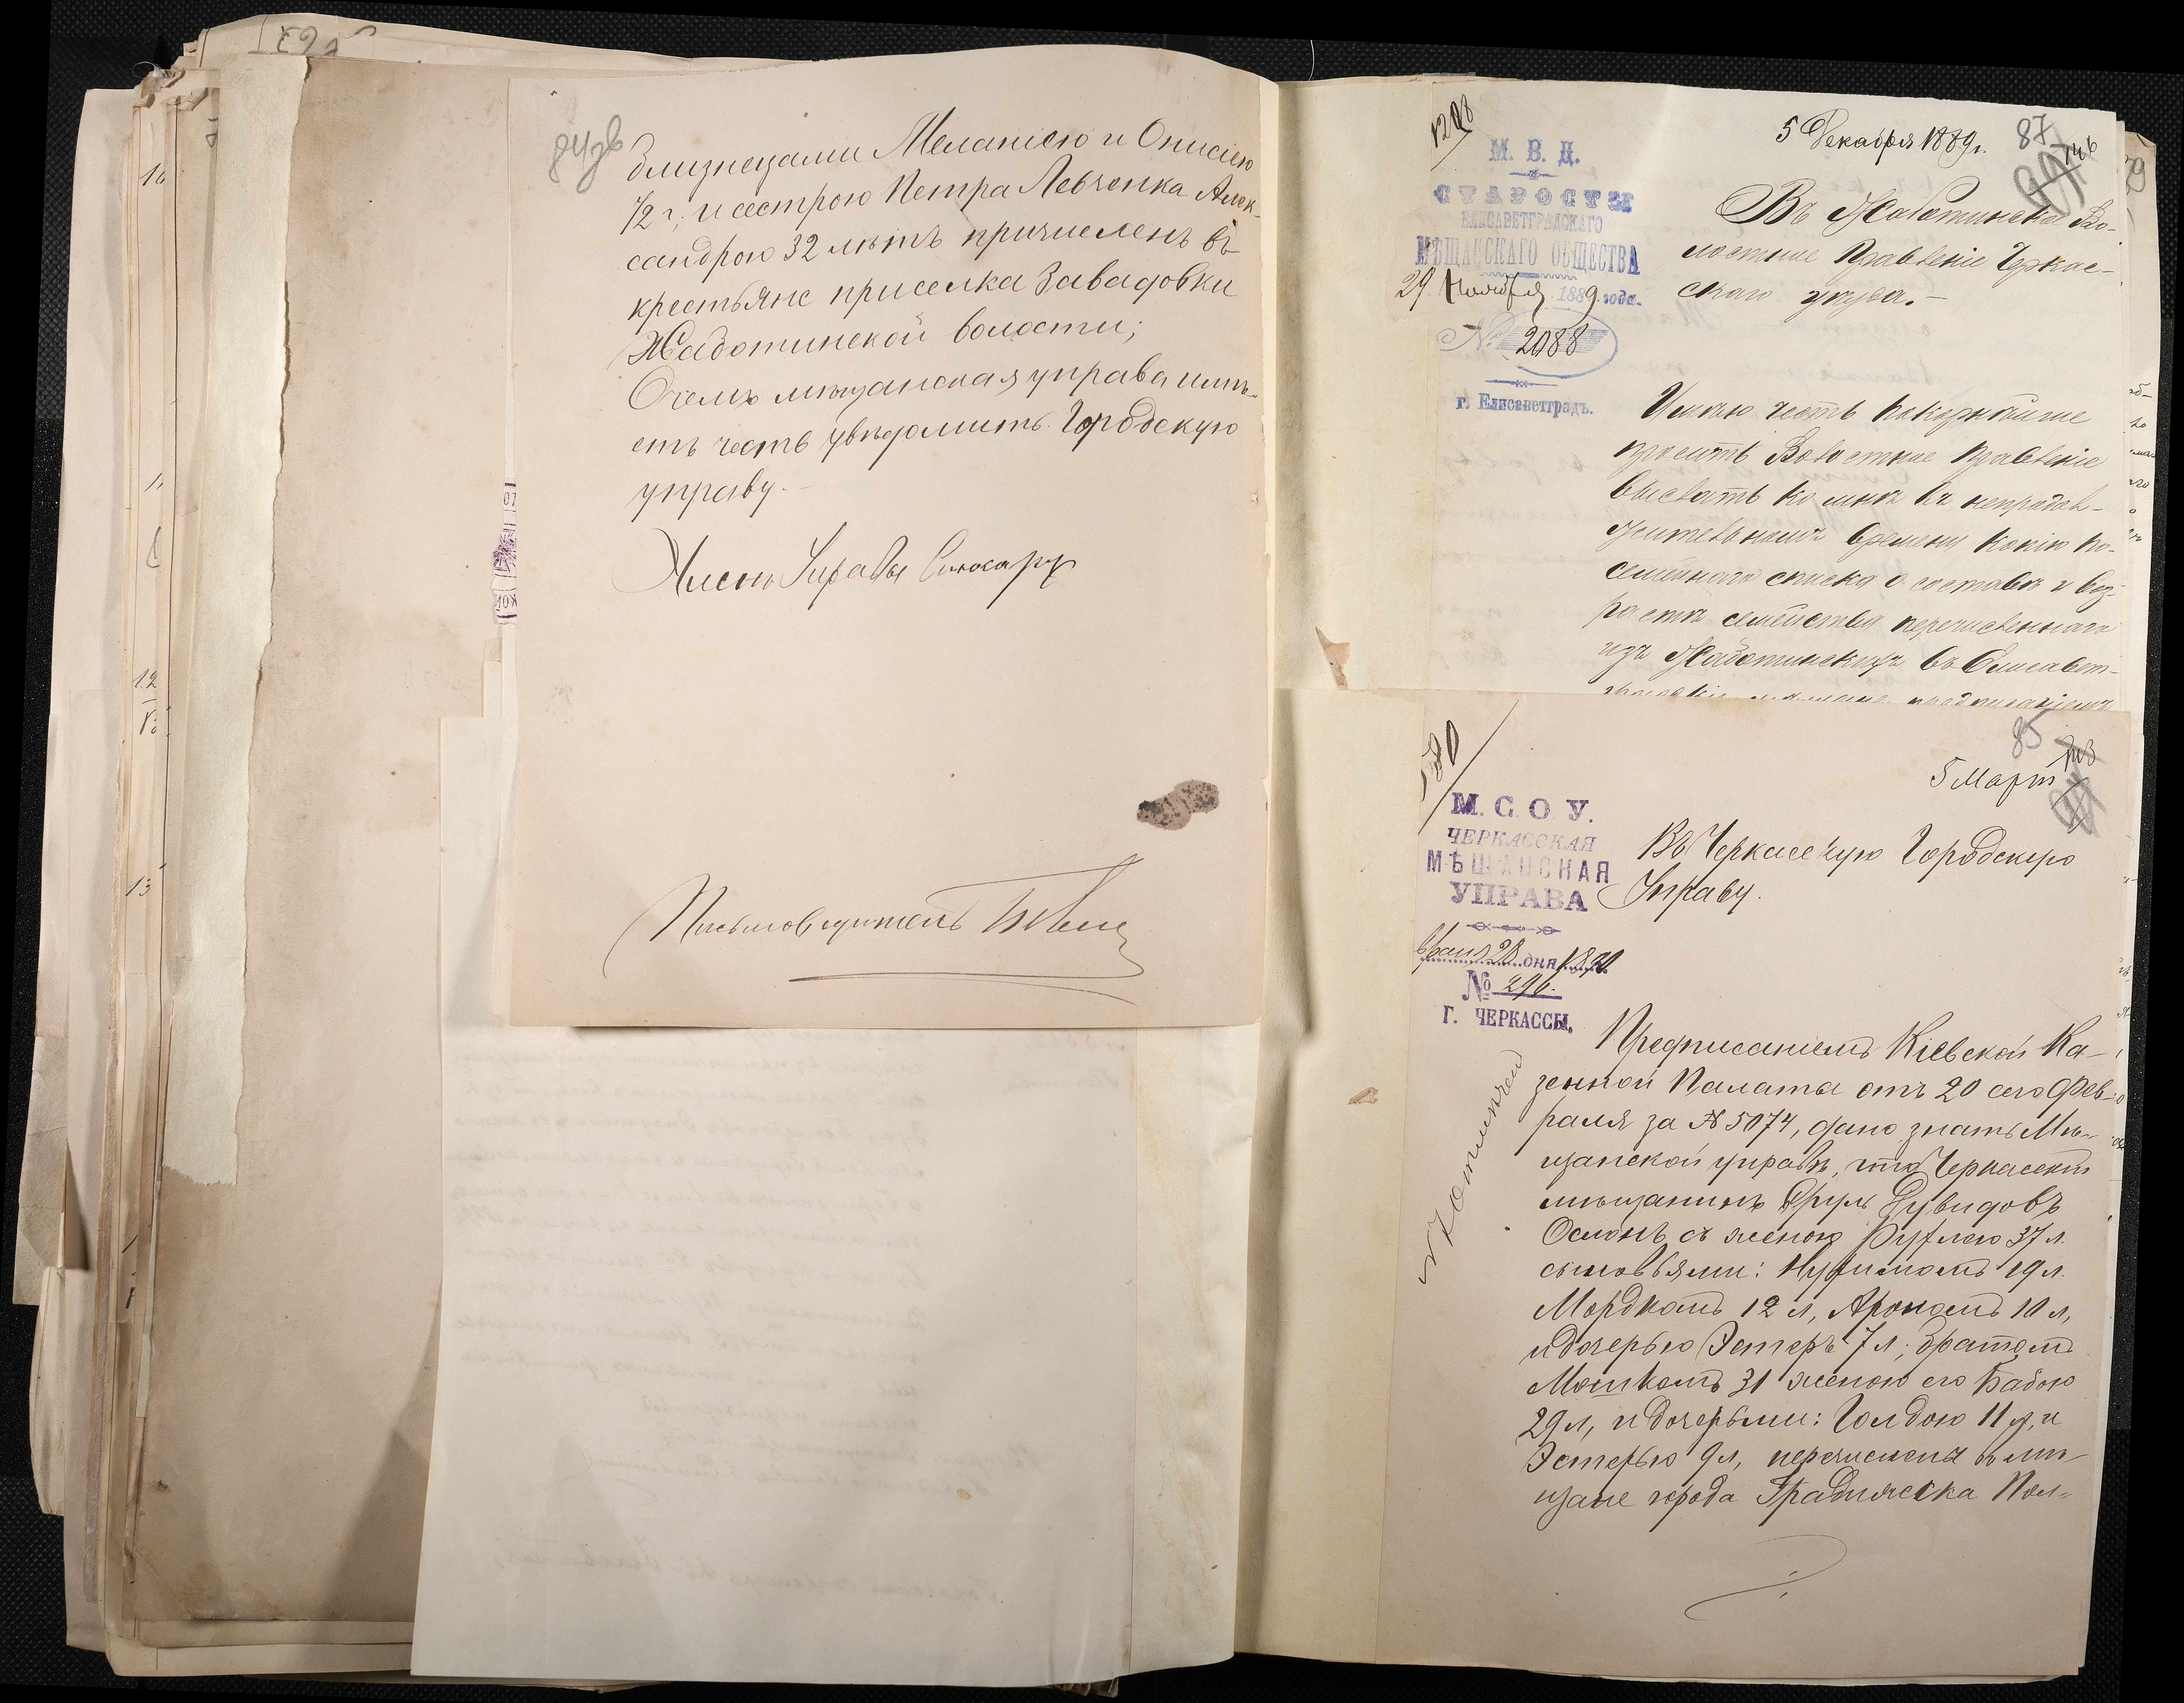 близнецами Меланіею и Онисіею
1/2 г, и сестрою Петра Левченка Алек-
сандрою 32 лѣтъ причисленъ въ
крестьяне приселка Завадовки
Жаботинской волости;
О чемъ мѣщанская управа имѣ-
етъ честь увѣдомить Городскую
управу.
Членъ Управы
Письмоводитель
1208
М. В. Д.
СТАРОСТЫ
ЕЛИСАВЕТГРАДСКАГО
МѢЩАНСКАГО ОБЩЕСТВА
29 Ноября 1889 года.
№ 2088
г. Елисаветградъ.
5 Декабря 1889 г.
87
146
Въ Жаботинское Во-
лостное Правленіе Черкас-
скаго уѣзда.-
Имѣю честь покорнѣйше
просить Волостное Правленіе
выслать ко мнѣ въ непродол-
жительномъ времени копію по-
семейнаго списка о составѣ и воз-
растѣ семейства перечисленнаго
изъ Жаботинскихъ въ Елисавет-
85
5 Март
М. С. О. У.
ЧЕРКАССКАЯ
МѢЩАНСКАЯ
УПРАВА
28 дня 1890
№ 296.
Г. ЧЕРКАССЫ.
Въ Черкасскую Городскую
Управу.
Предписаніемъ Кіевской Ка-
зенной Палаты отъ 20 сего Фев-
раля за № 5074, дано знать Мѣ-
щанской управѣ, что Черкасскій
мѣщанинъ Сруль Дувидовъ
Ослонъ съ женою Рухлею 37 л.
сыновьями: 19 л.
Мордкомъ 12 л, Арономъ 10 л,
и дочерью Эстеръ 7 л; братомъ
Мошкомъ 31 женою его Бабою
29 л, и дочерьми: Голдою 11 л, и
Эстерью 9 л, перечисленъ въ мѣ-
щане города Градижска Пол-